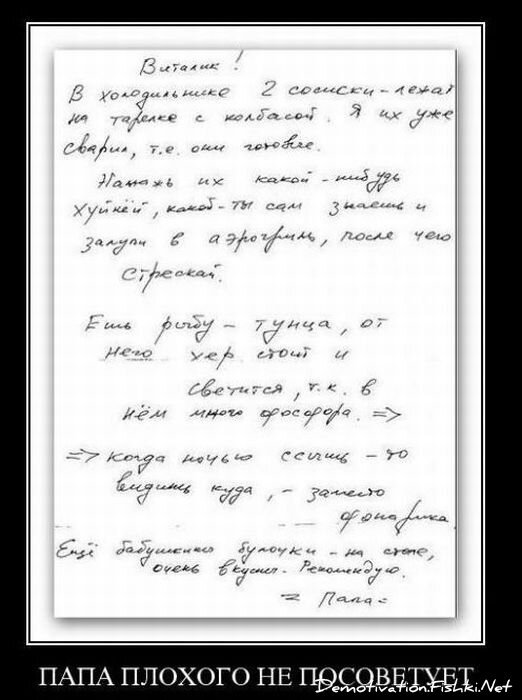 Виталик!
В холодильнике 2 сосиски - лежат
на тарелке с колбасой. Я их уже
сварил, т.е. они готовые.
Намажь их какой-нибудь
хуйнёй, какой - ты сам знаешь и
залупи в аэрогриль, после чего
стрескай.
Ешь рыбу - тунца, от
него хер стоит и
светится, т.к. в
нём много фосфора. =>
=> когда ночью ссышь - то
видишь куда, - заместо
фонарика.
Ещё бабушкины булочки - на столе,
очень вкусны. Рекомендую.
= Папа =
ПАПА ПЛОХОГО НЕ ПОСОВЕТУЕТ
Demotivation.Fishki.Net